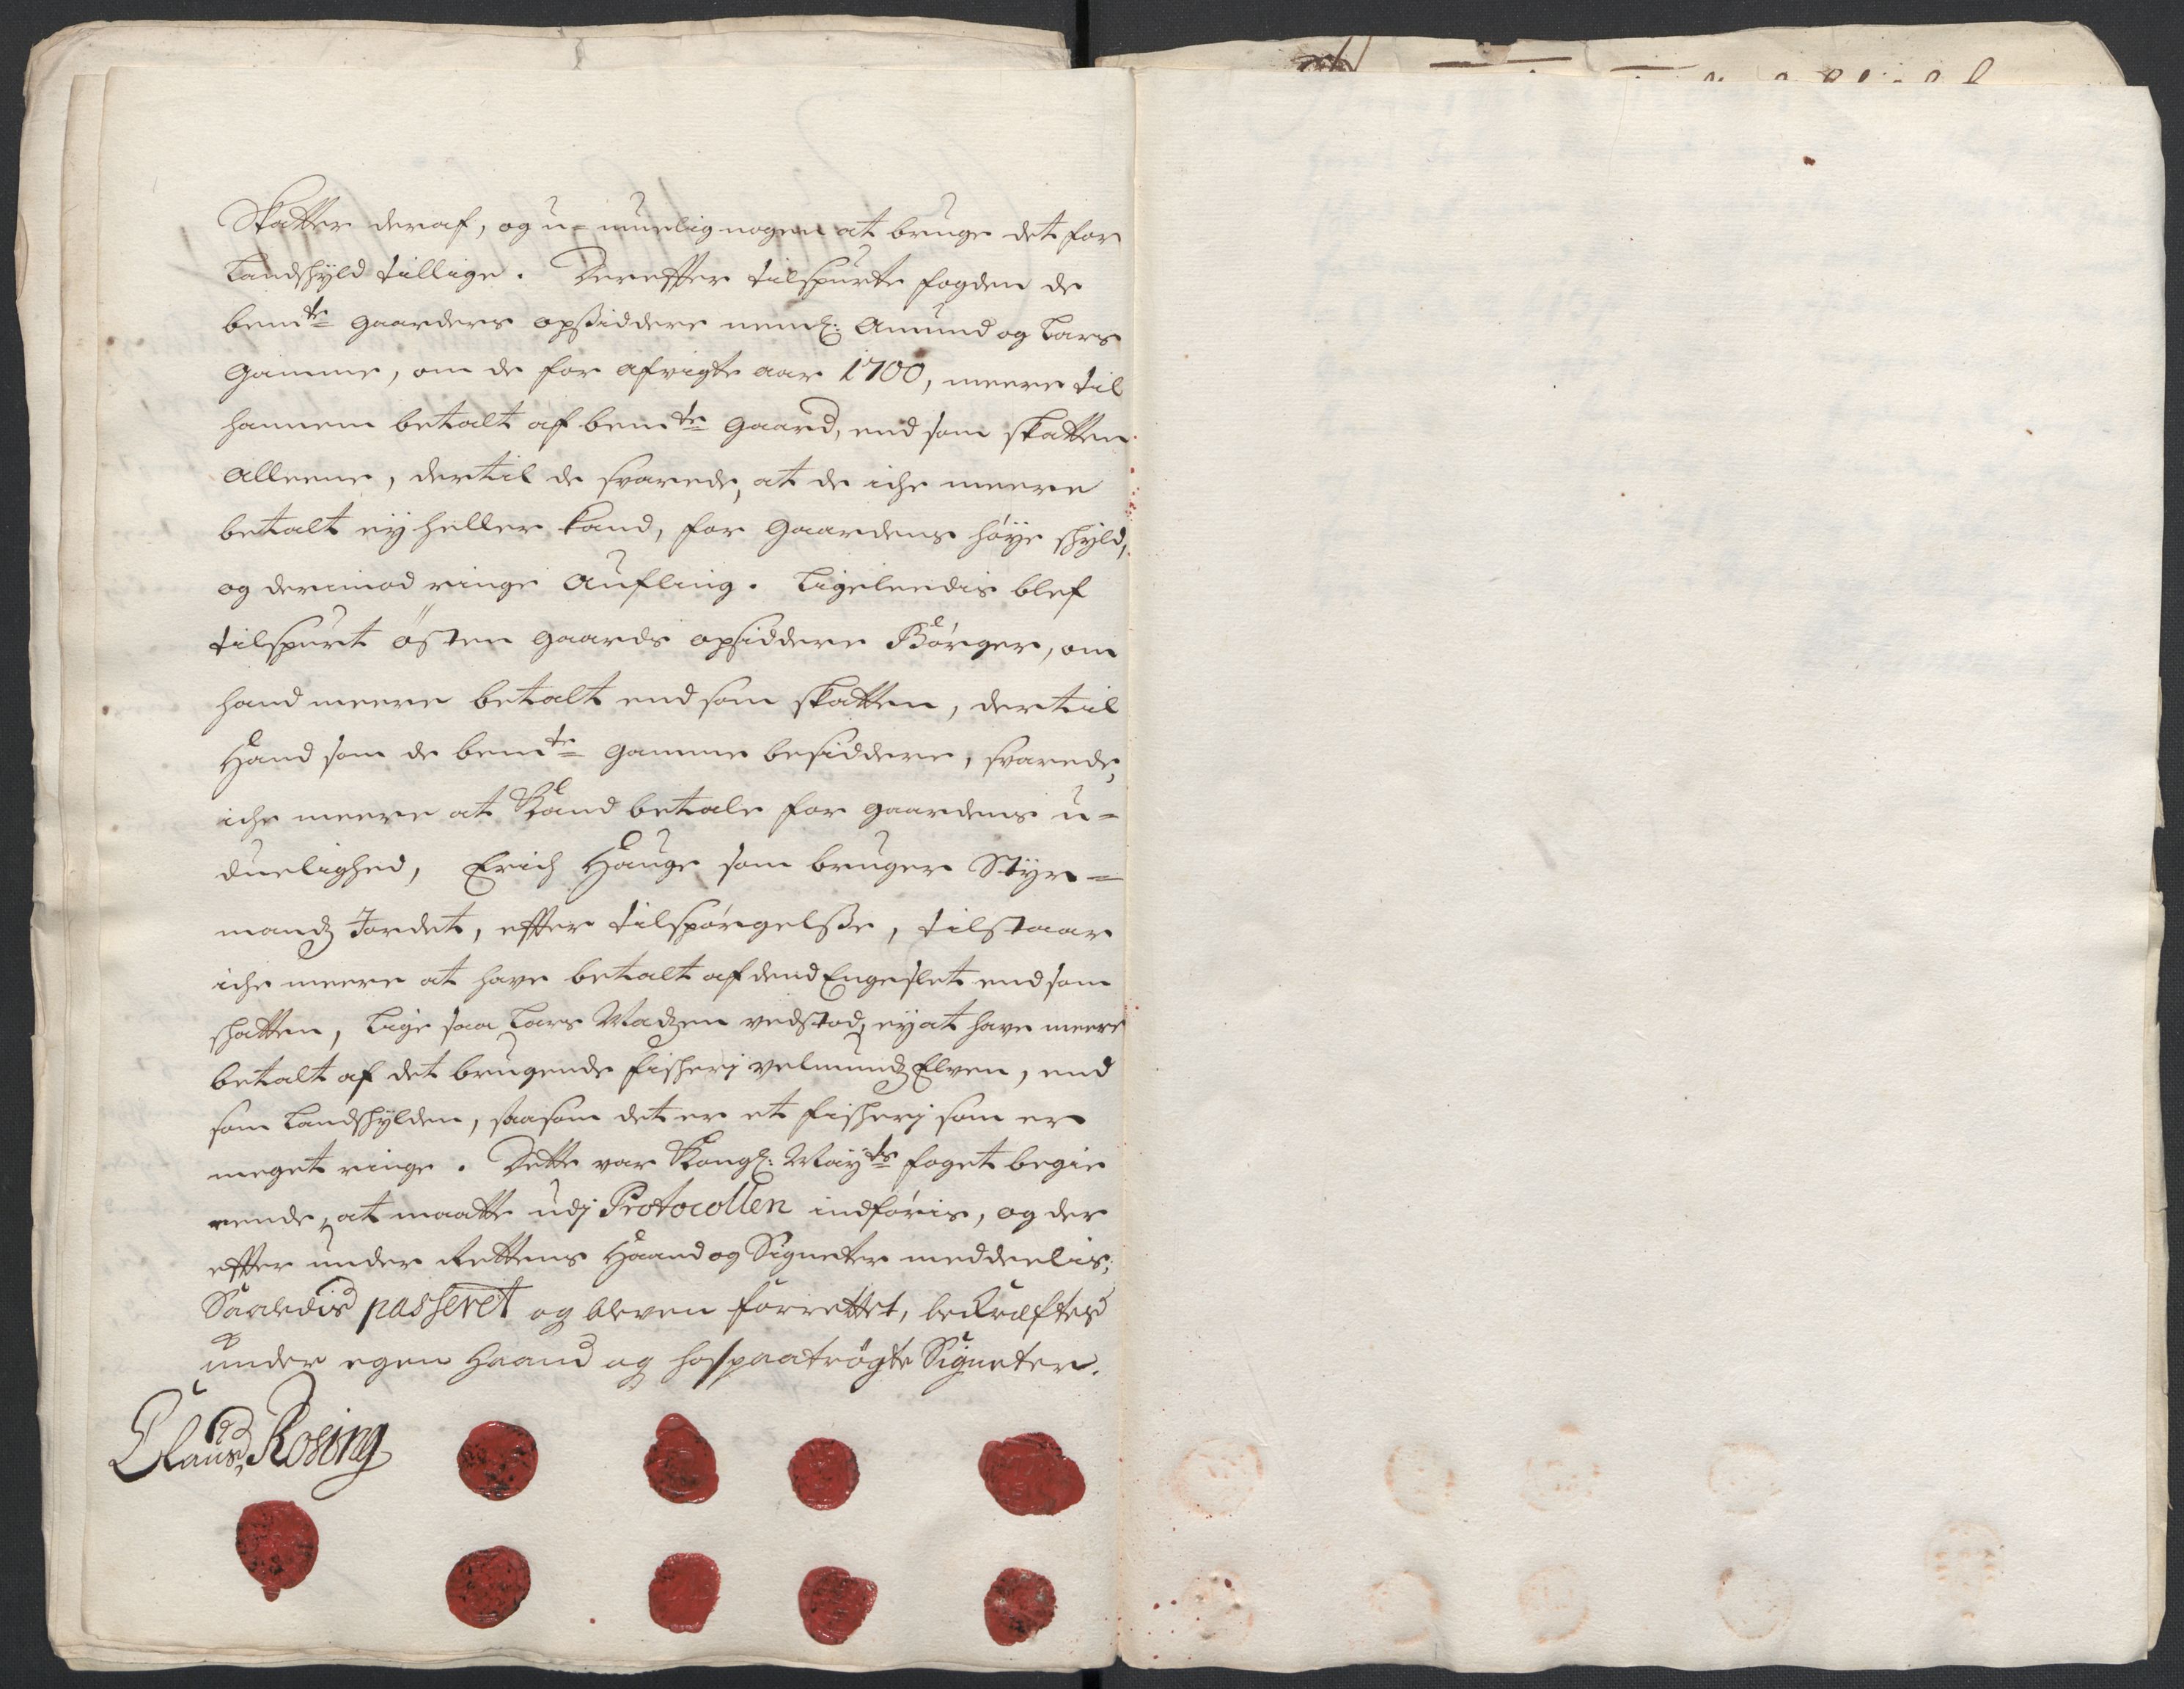 Skatter deraf, og u-muelig nogen at bruge det for
Landshyld tillige. Dereffter tilspurte fogden de
bemte gaarders opsiddere neml: Amund og Lars
Gamme, om de for afvigte aar 1700, meere til
hannem betalt af bemte gaard, end som skatten
alleene, dertil de svarede, at de iche meere
betalt ey heller kand, for gaardens høye shyld,
og derimod ringe aufling. Ligeleedis blef
tilspurt østen gaards opsiddere Børger, om
hand meere betalt end som skatten, dertil
Hand som de bemte Gamme besiddere, svarede,
iche meere at Kand betale for gaardens u-
duelighed, Erich Hauge som bruger Styr-
mandz Jordet, effter tilspørgelsse, tilstaar
iche meere at have betalt af dend Engeslet end som
shatten, lige saa Lars Madzen vedstod, ey at have meere
betalt af det brugende fisherj velmundz Elven, end
som Landshylden, saasom det er et fisherj som er
meget ringe. Dette var Kongl: Mayts foget begie
rende, at maatte udj Protocollen indføris, og der
effter under Rettens Haand og Signeter meddeelis;
Saaledis passeret og bleven forrettet, bekræftes
under egen Haand og hospaatrøgte Signeter.
Clauss Rosing